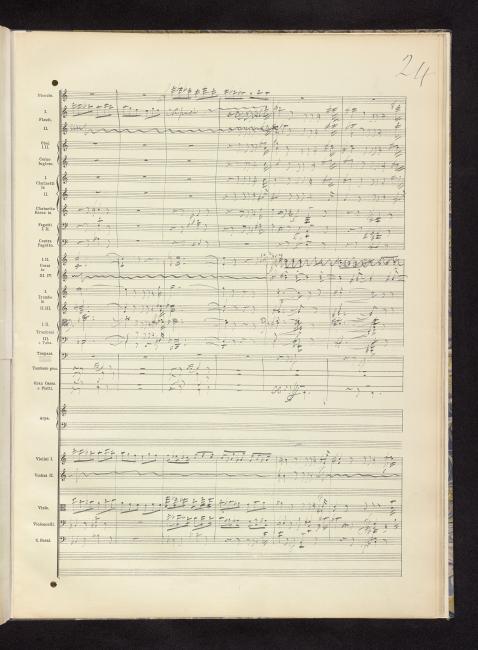 24
Piccolo.
I.
Flauti.
II.
Oboi
I. II.
Corno
Inglese.
I.
Clarinetti
in
II.
Clarinetto
Basso in
Fagotti
I. II.
Contra
Fagotto.
I. II.
Corni
in
III. IV.
I.
Trombe
in
II. III.
I. II.
Tromboni
III.
e Tuba.
Timpani.
Tamburo picc.
Gran Cassa
e Piatti.
Arpa.
Violini I.
Violini II.
Viole.
Violoncelli.
C. Bassi.